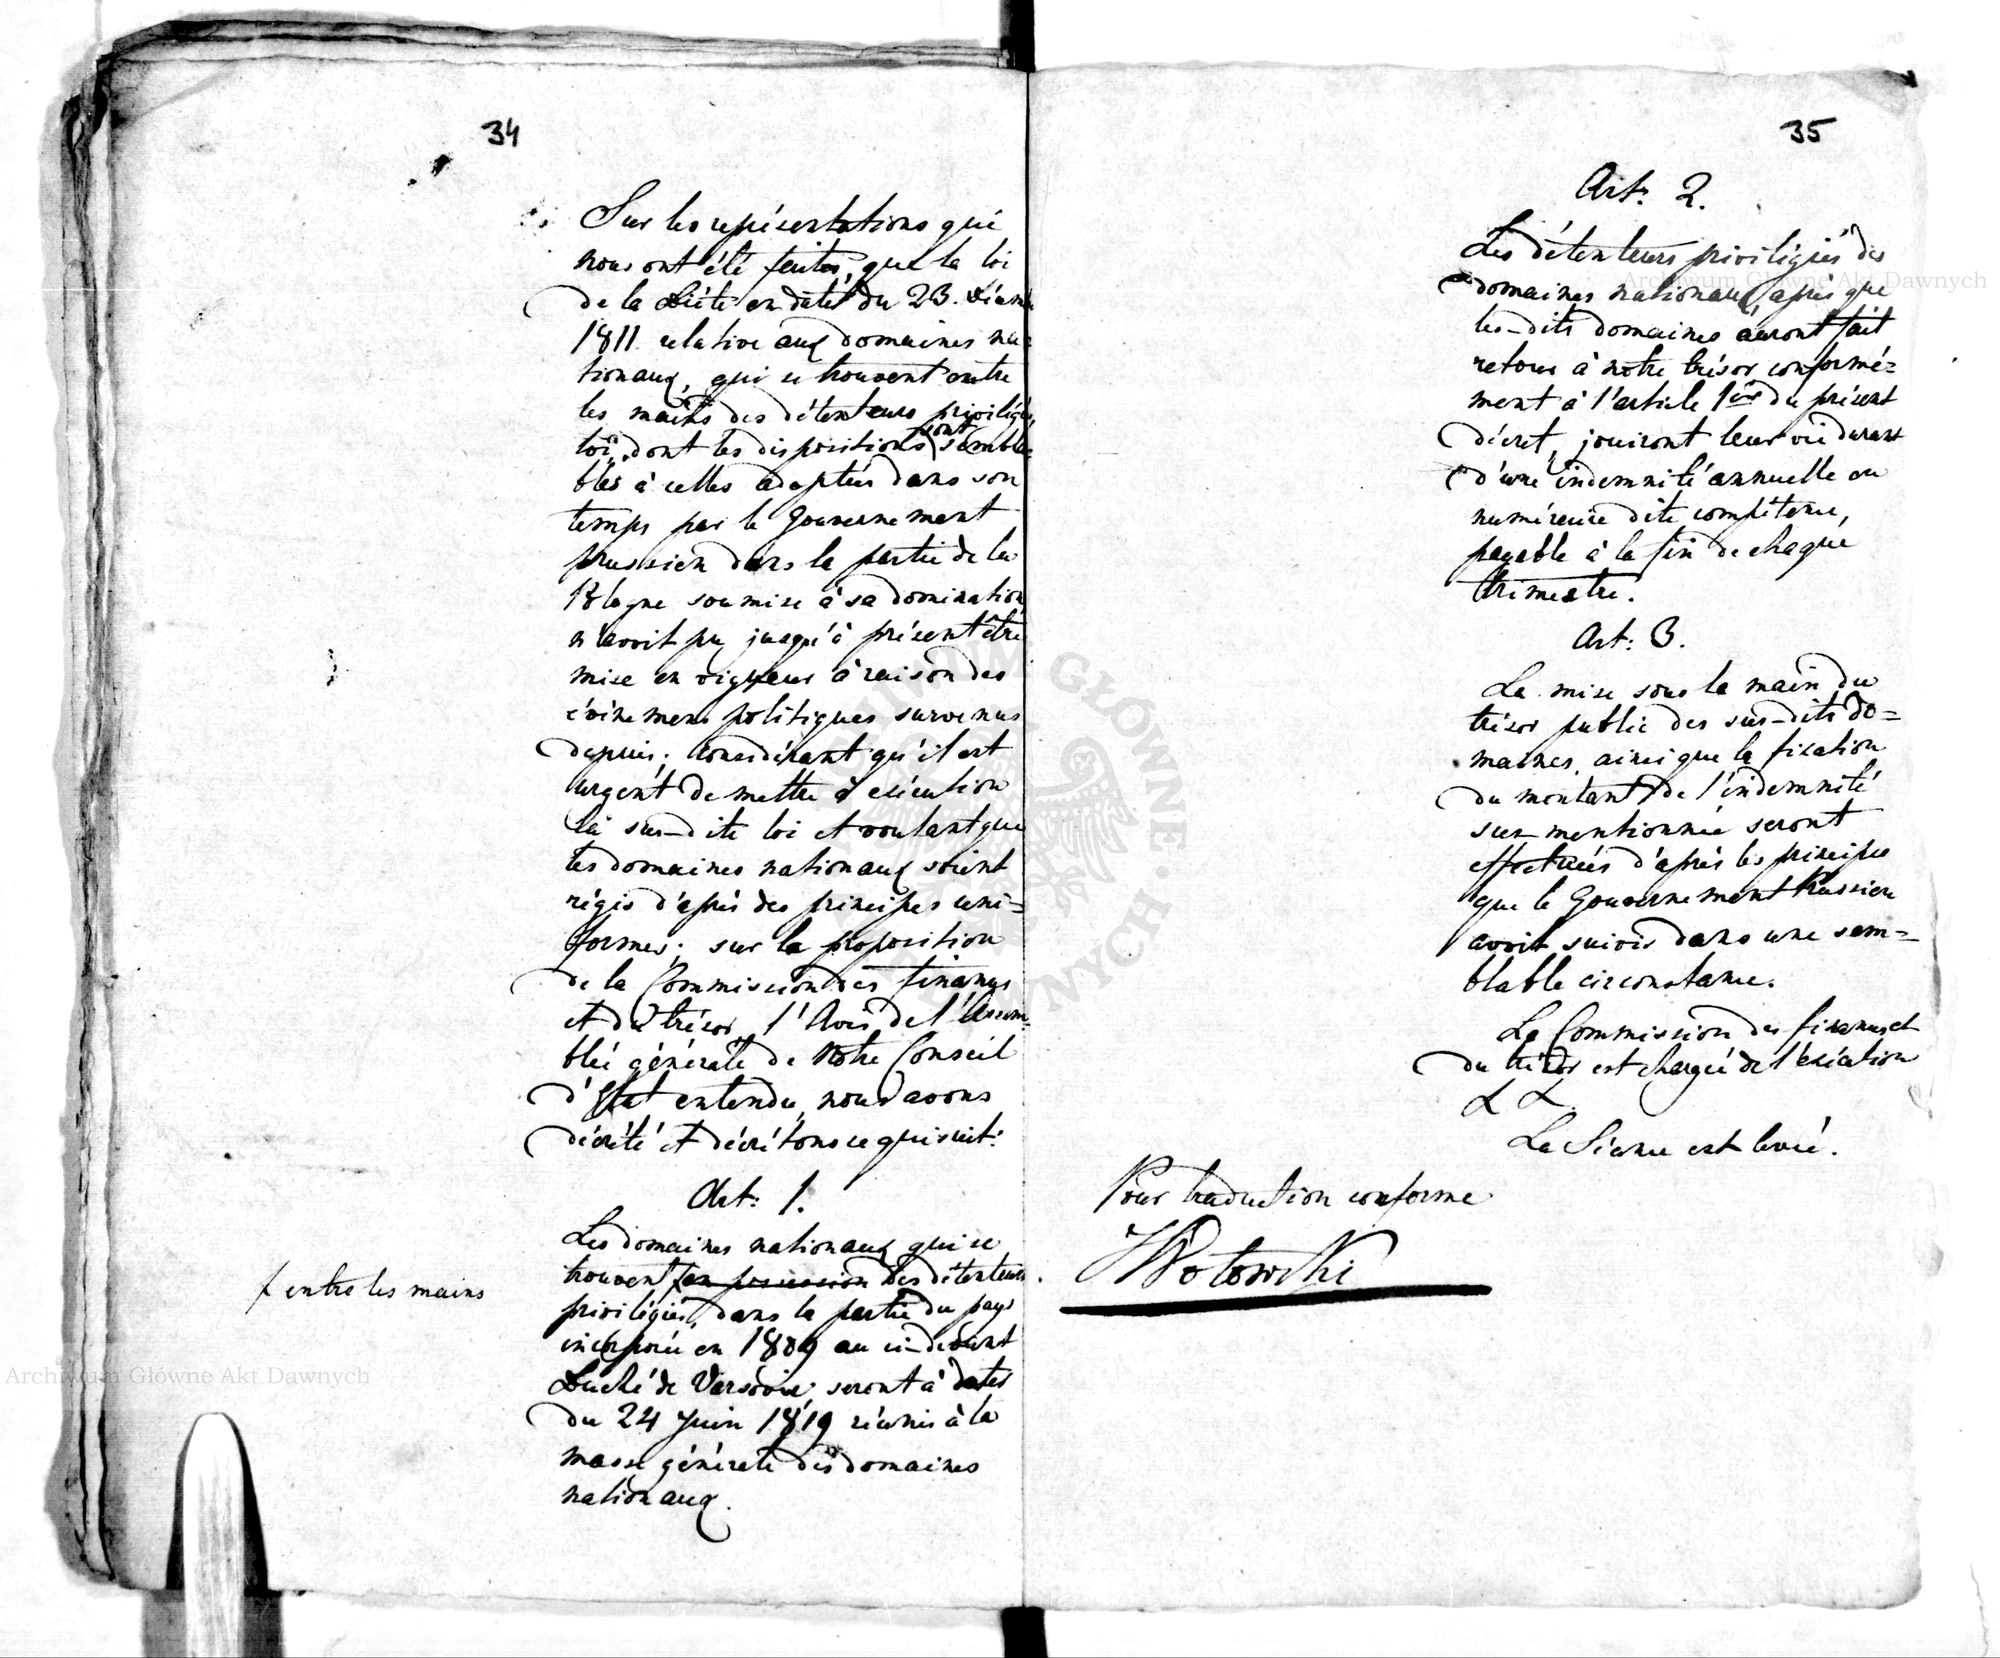 34
Sur les représentations qui
nous ont été faites, que la loi
de la Diéte en date du 23. Décem
1811 relative aux domaines na=
tionaux, qui se trouvent entre
les mains des détenteurs privilégiés
loi, dont les dispositions sont sembla
bles à celles adoptées dans son
temps par le Gouvernement
prussien dans la partie de la
Pologne soumise à sa domination
n'avoit pu jusqu'à présent être
mise en vigueur à raison des
évènemens politiques survenus
depuis; considérant qu'il est
urgent de mettre à exécution
la sus-dite loi et voulant que
les domaines nationaux soient
régis d'après des principes uni=
formes; sur la proposition
de la Commission des finances
et du trésor, l'Avis de l'Assem=
blée générale de Notre Conseil
d'Etat entendu, nous avons
décrété et décrétons ce qui suit:
Art: 1.
Les domaines nationaux qui se
trouvent en possession des détenteurs
f entre les mains
privilégiés, dans la partie du pays
incorporée en 1809 au ci-devant
Duché de Varsovie, seront à dater
du 24 Juin 1819 réunis à la
masse générale des domaines
nationaux.
35
Art: 2.
Les détenteurs privilégiés des
domaines nationaux, après que
les-dits domaines auront fait
retour à notre trésor conformé=
ment à l'article 1er du présent
décret, jouiront leur vie durant
d'une indemnité annuelle en
numéraire dite compétence,
payable à la fin de chaque
trimestre.
Art: 3.
La mise sous la main du
trésor public des sus-dits do=
maines, ainsi que la fixation
du montant de l'indemnité
sus-mentionnée seront
effectuées d'après les principes
que le Gouvernement Prussien
avoit suivis dans une sem=
blable circonstance.
La Commission des finances et
du trésor est chargée de l'exécution
La Séance est levée.
Pour traduction conforme
Wołowski
Archiwum Główne Akt Dawnych
Archiwum Główne Akt Dawnych